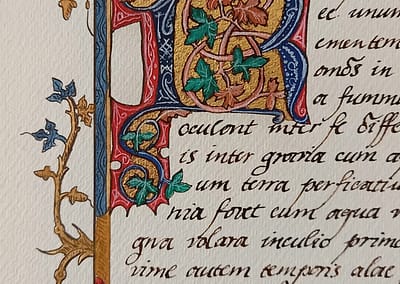 ec unum
ementem
omõs in
a fumm
oculont inter fe diffe
is inter graria cum a
um terra perficatiu
nia fovet cum aqua v
gna volara inculeo prime
vime autem temporis alae